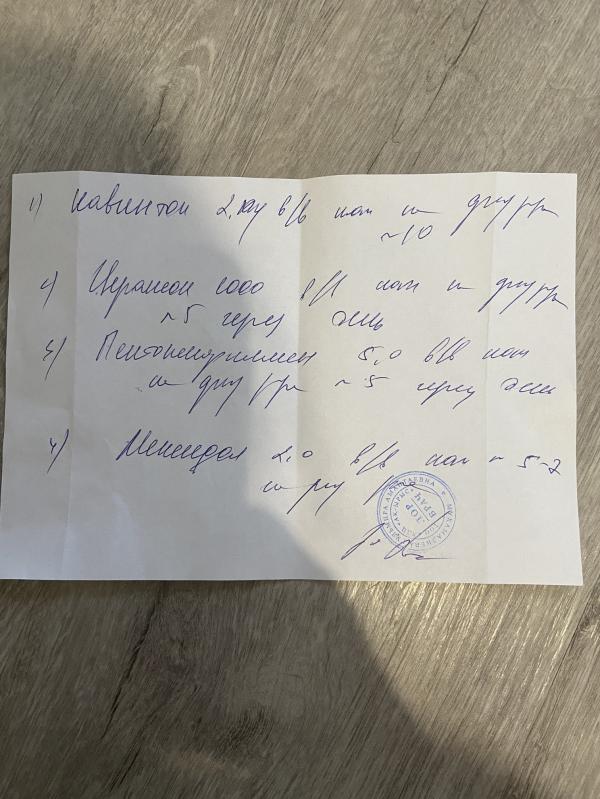 1) Кавинтон 2,0 в/в кап на физ рр
~10
2) Цератон 1000 в/в кап на физ рр
~5 через день
3) Пентоксифиллин 5,0 в/в кап
на физ рр ~5 через день
4) Мексидол 2,0 в/в кап ~ 5-7
на физ рр
ЛОР
ВРАЧ